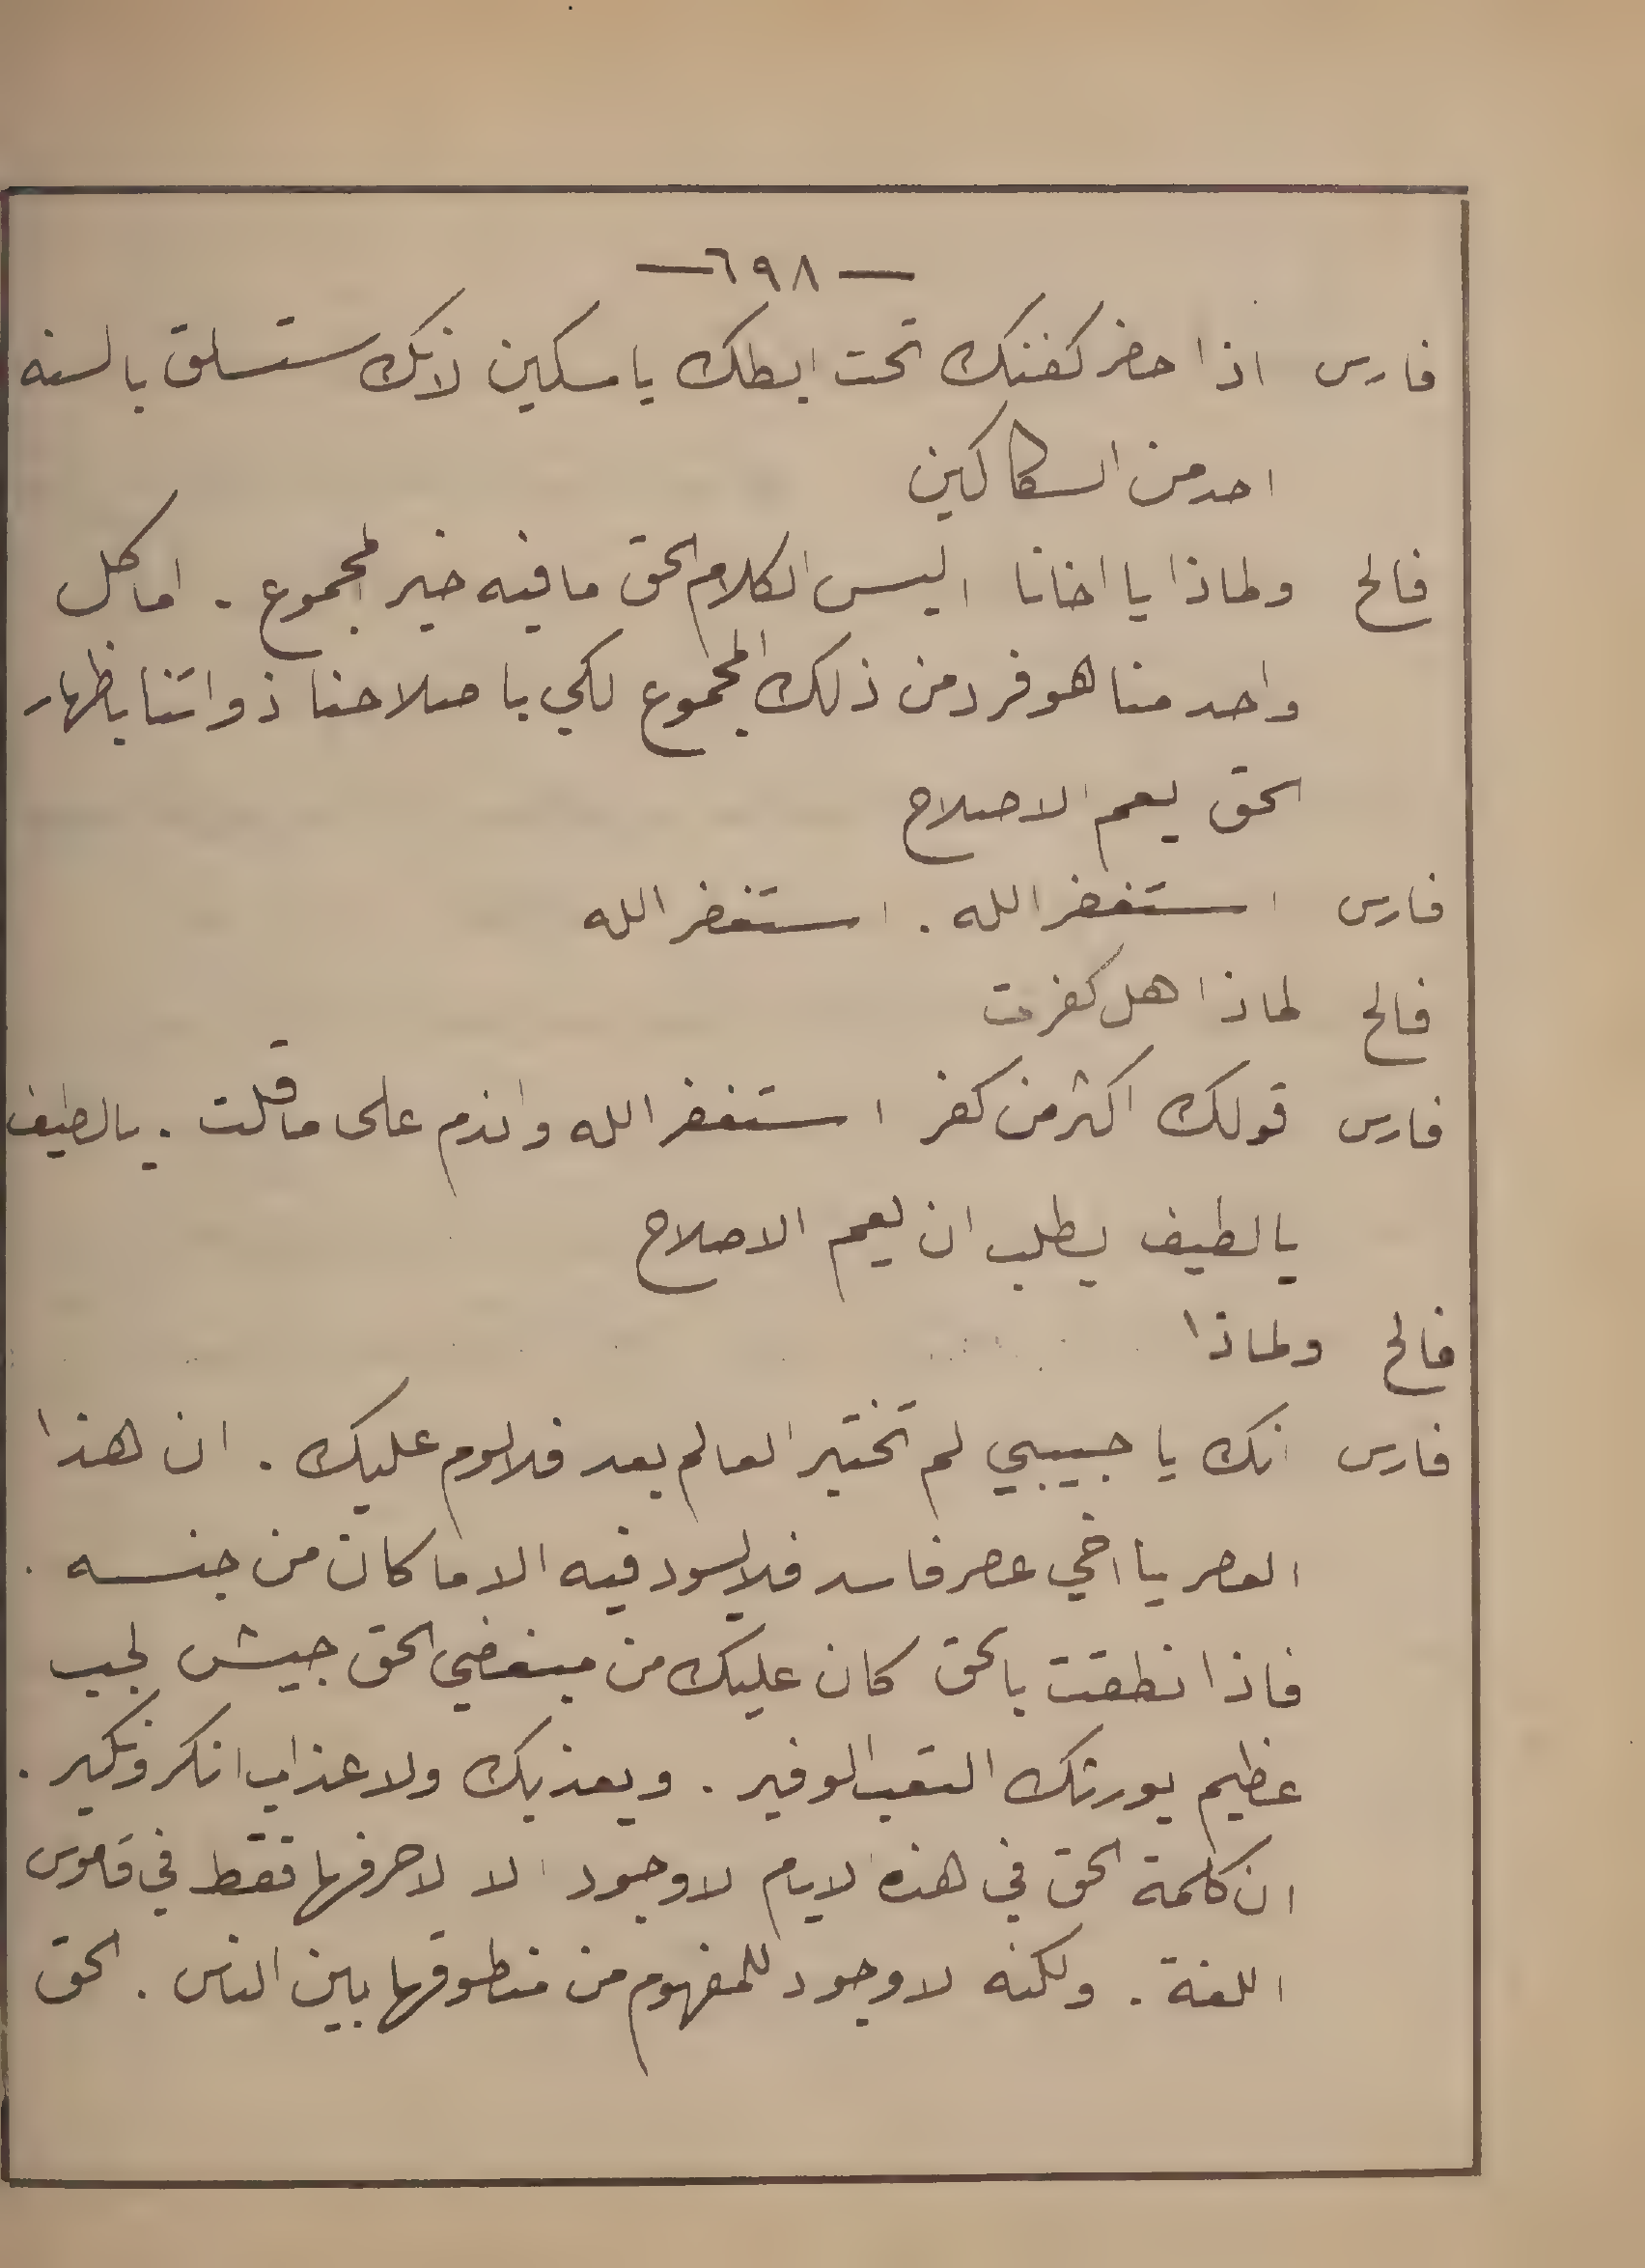 — ٦٩٨ —
فارس اذا حضر كفنك تحت ابطك يا مسكين لانك ستسلق بالسنه
احد من السكاكين
فالح ولماذا يا اخانا اليس الكلام الحق ما فيه خير المجموع . اما كل
واحد منا هو فرد من ذلك المجموع لكي باصلاحنا ذواتنا باظهار
الحق يعم الاصلاح
فارس استغفر الله . استغفر الله
فالح لماذا هل كفرت
فارس قولك اكثر من كفر استغفر الله واندم على ما قلت . يالطيف
يالطيف يطلب ان يعم الاصلاح
فالح ولماذا
فارس انك يا حبيبي لم تختبر العالم بعد فلا لوم عليك . ان هذا
العصر يا اخي عصر فاسد فلا يسود فيه الا ما كان من جنسه .
فاذا نطقت بالحق كان عليك من مبغضي الحق جيش لجب
عظيم يورثك التعب الوفير . ويعذبك ولا عذاب انكر ونكير .
ان كلمة الحق في هذه الايام لا وجود الا لاحرفها فقط في قاموس
اللغة . ولكنه لا وجود للمفهوم من منطوقها بين الناس . الحق